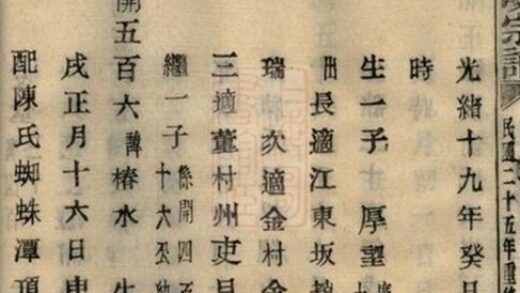 宗譜
民國二十五年重修
光緒十九年癸
時
生一子厚望
出長適江東坂趙
瑞 次適金村金
三適董村州吏目
繼一子 係開四百
開五百六 諱椿水 生
戌正月十六日申
配陳氏蜘蛛潭頂